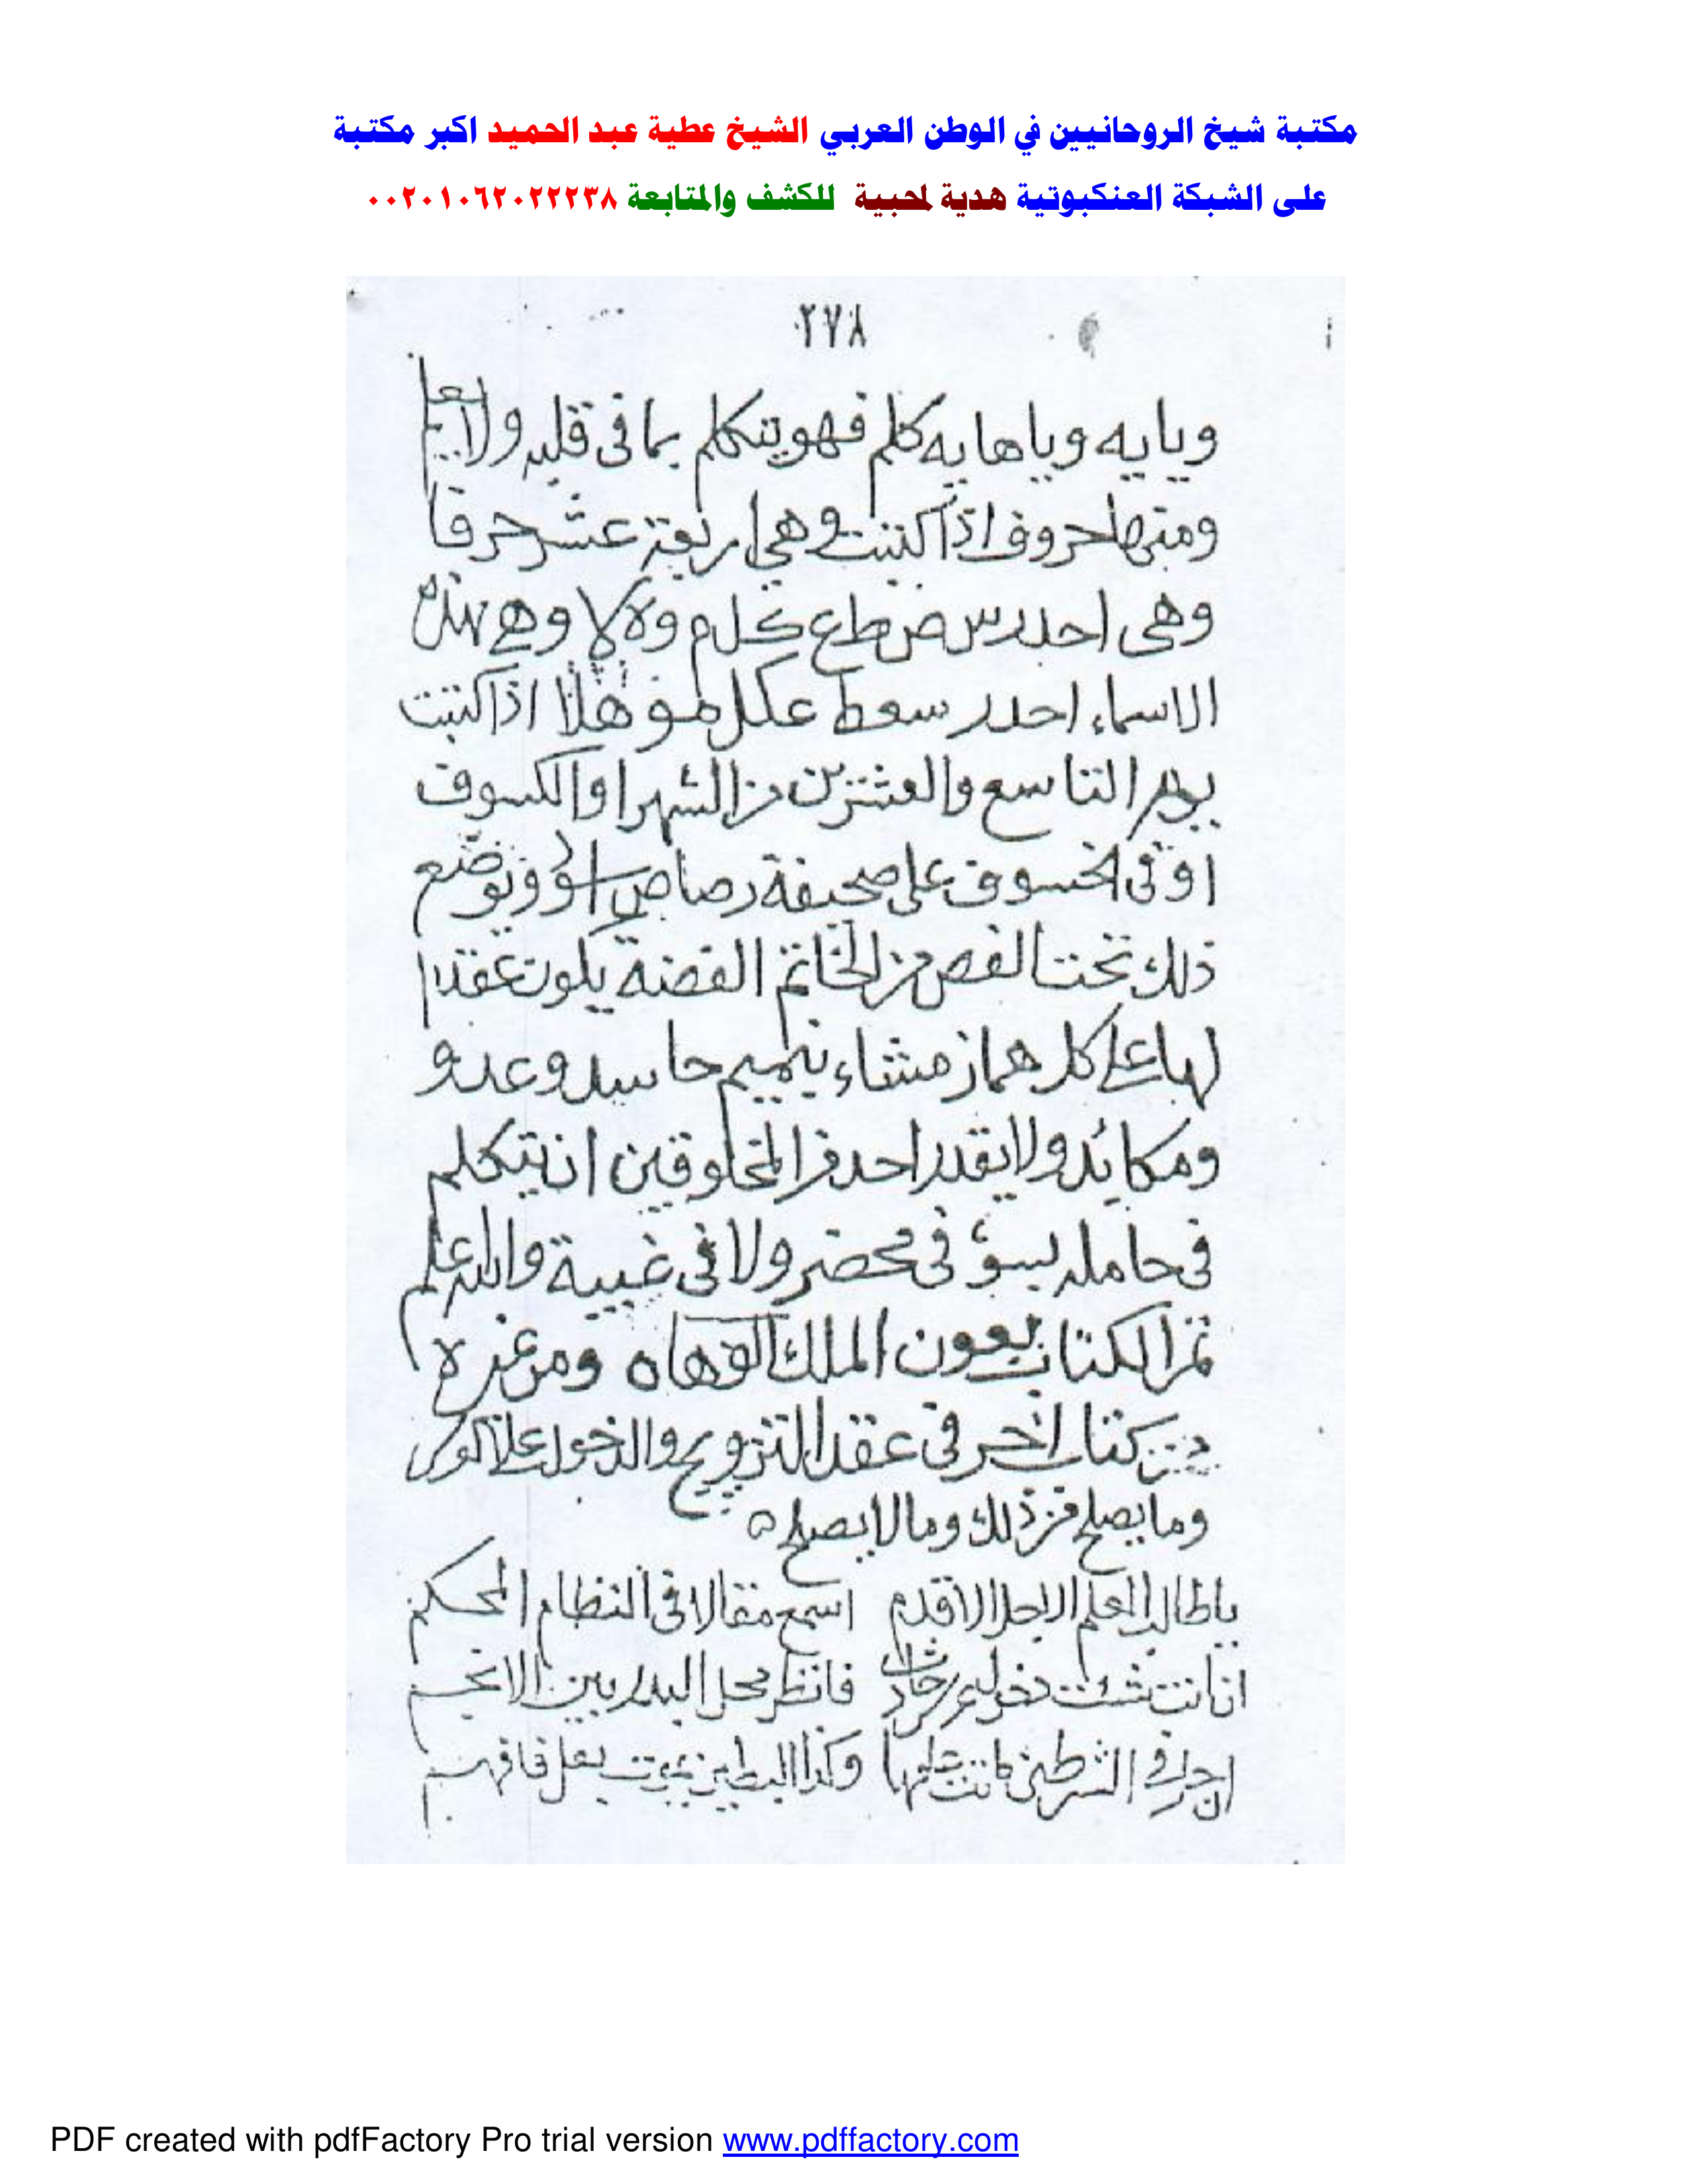 مكتبة شيخ الروحانيين في الوطن العربي الشيخ عطية عبد الحميد اكبر مكتبة
على الشبكة العنكبوتية هدية لمحبية للكشف والمتابعة ٠٠٢٠١٠٦٢٠٢٢٢٣٨
٢٧٨
ويايه وياهايه كلم فهو يتكلم بما فى قلبه ولا يعلم
ومنها حروف اذا كتبت وهي اربعة عشر حرفا
وهى ا ح د ر س ص ط ع ك ل م و ه لا وهي هذه
الاسماء احدر سعط عكل هو هلا اذا كتبت
يوم التاسع والعشرين من الشهر او الكسوف
او فى الخسوف على صحيفة رصاص اسود ويوضع
ذلك تحت الفص من الخاتم الفضة يكون عقدا
لها على كل هماز مشاء بنميم حاسد وعدو
ومكائد ولا يقدر احد من المخلوقين ان يتكلم
فى حامله بسوء فى محضر ولا فى غيبة والله اعلم
تم الكتاب بعون الملك الوهاب ومن غيره
من كتاب اخر فى عقد التزويج والدخول على
وما يصلح من ذلك وما لا يصلح
يا طالب العلم الاجل الاقدم اسمع مقالا فى النظام المحكم
ان انت شئت فانظر محل البدر بين الانجم
ان حل في الشرطين وكذا البطين يموت بعل فافهم
PDF created with pdfFactory Pro trial version www.pdffactory.com